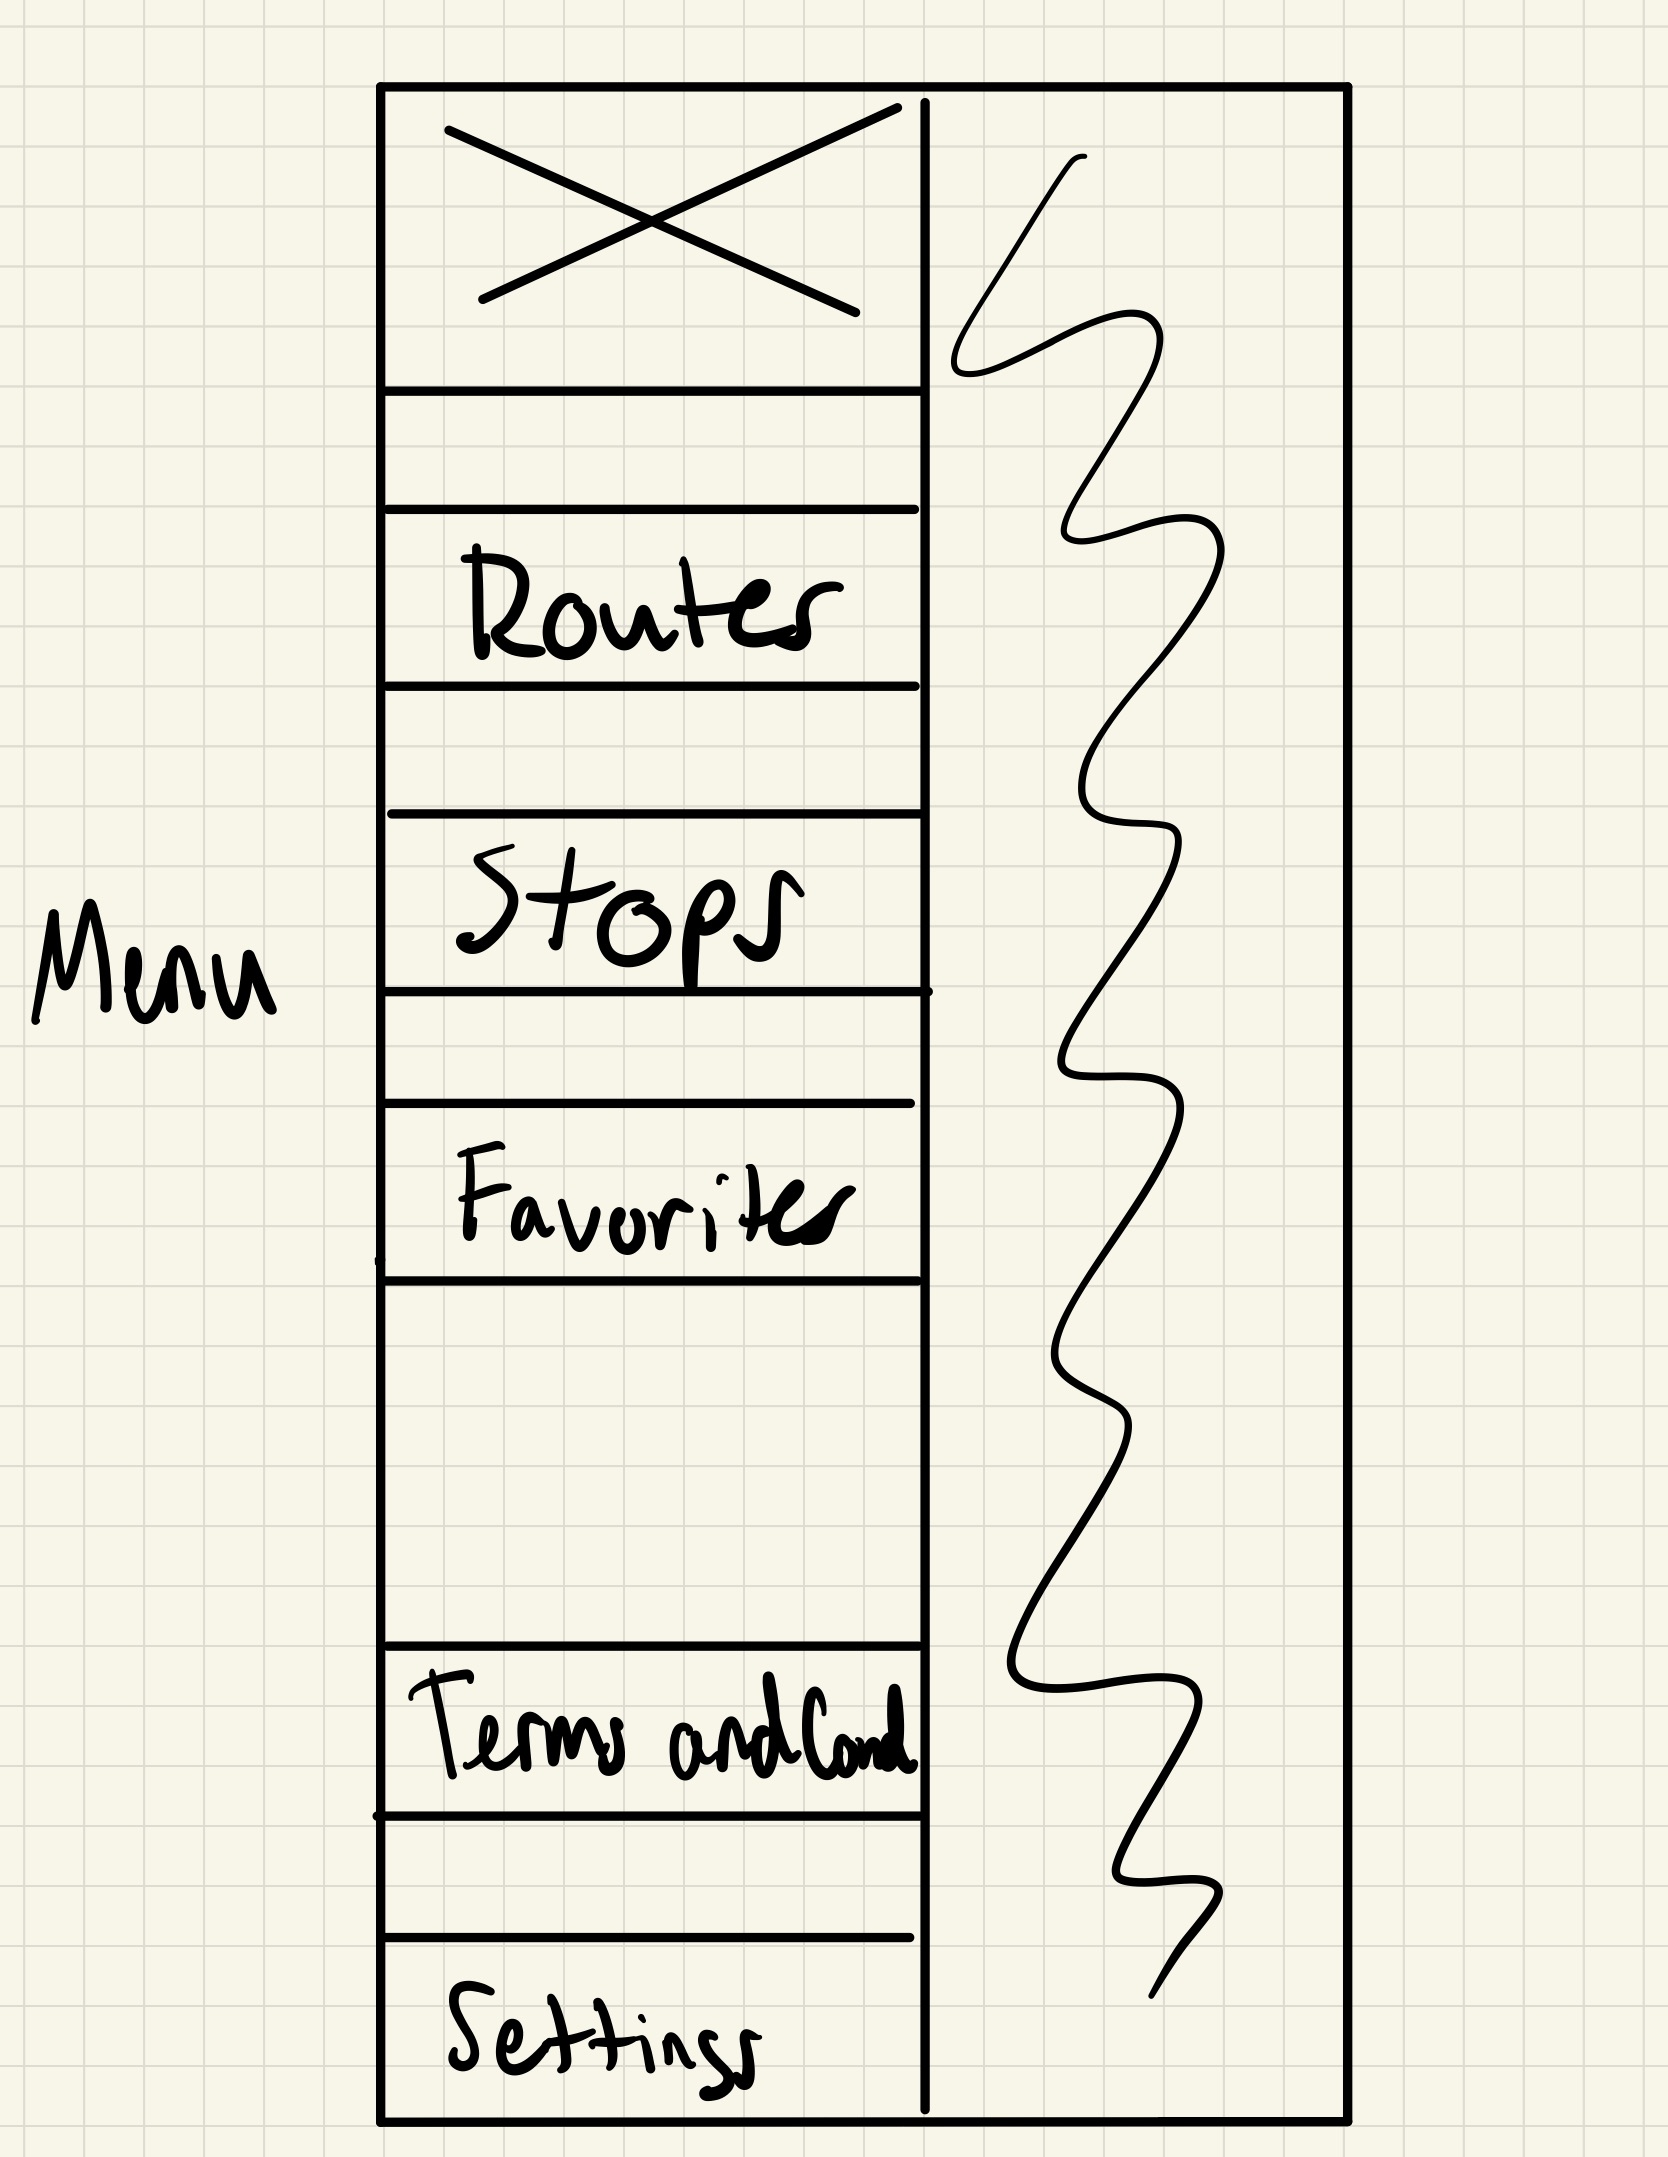 Menu
Routes
Stops
Favorites
Terms and Cond
Settings